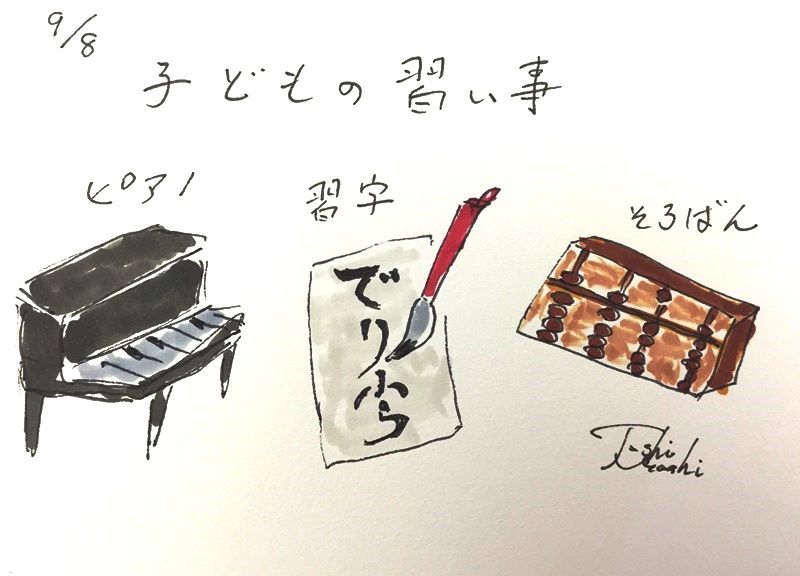 9/8
子どもの習い事
ピアノ
習字
そろばん
でりふら